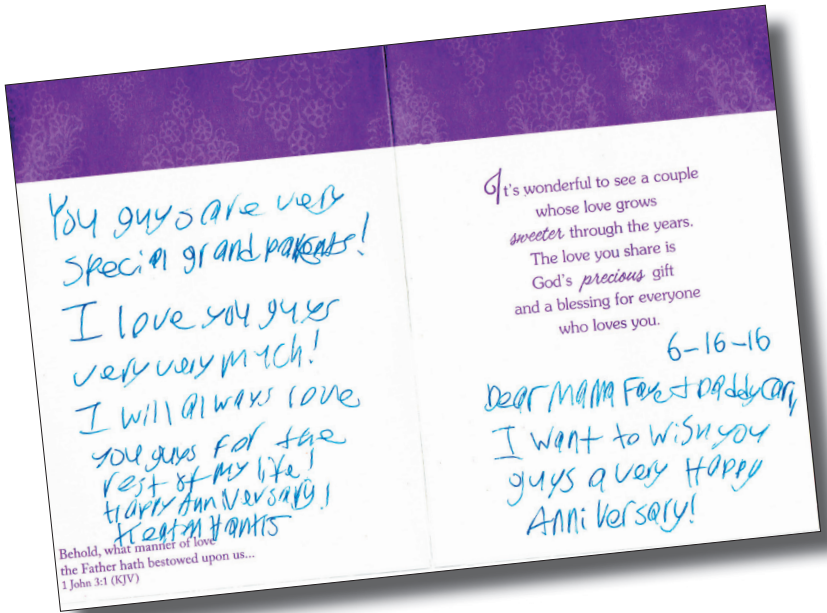 You guys are very
special grandparents!
I love you guys
very very much!
I will always love
you guys for the
rest of my life!
Happy Anniversary!
Behold, what manner of love
the Father hath bestowed upon us...
1 John 3:1 (KJV)
It's wonderful to see a couple
whose love grows
sweeter through the years.
The love you share is
God's precious gift
and a blessing for everyone
who loves you.
6-16-16
Dear Mama Faye + Daddy
I want to wish you
guys a very Happy
Anniversary!